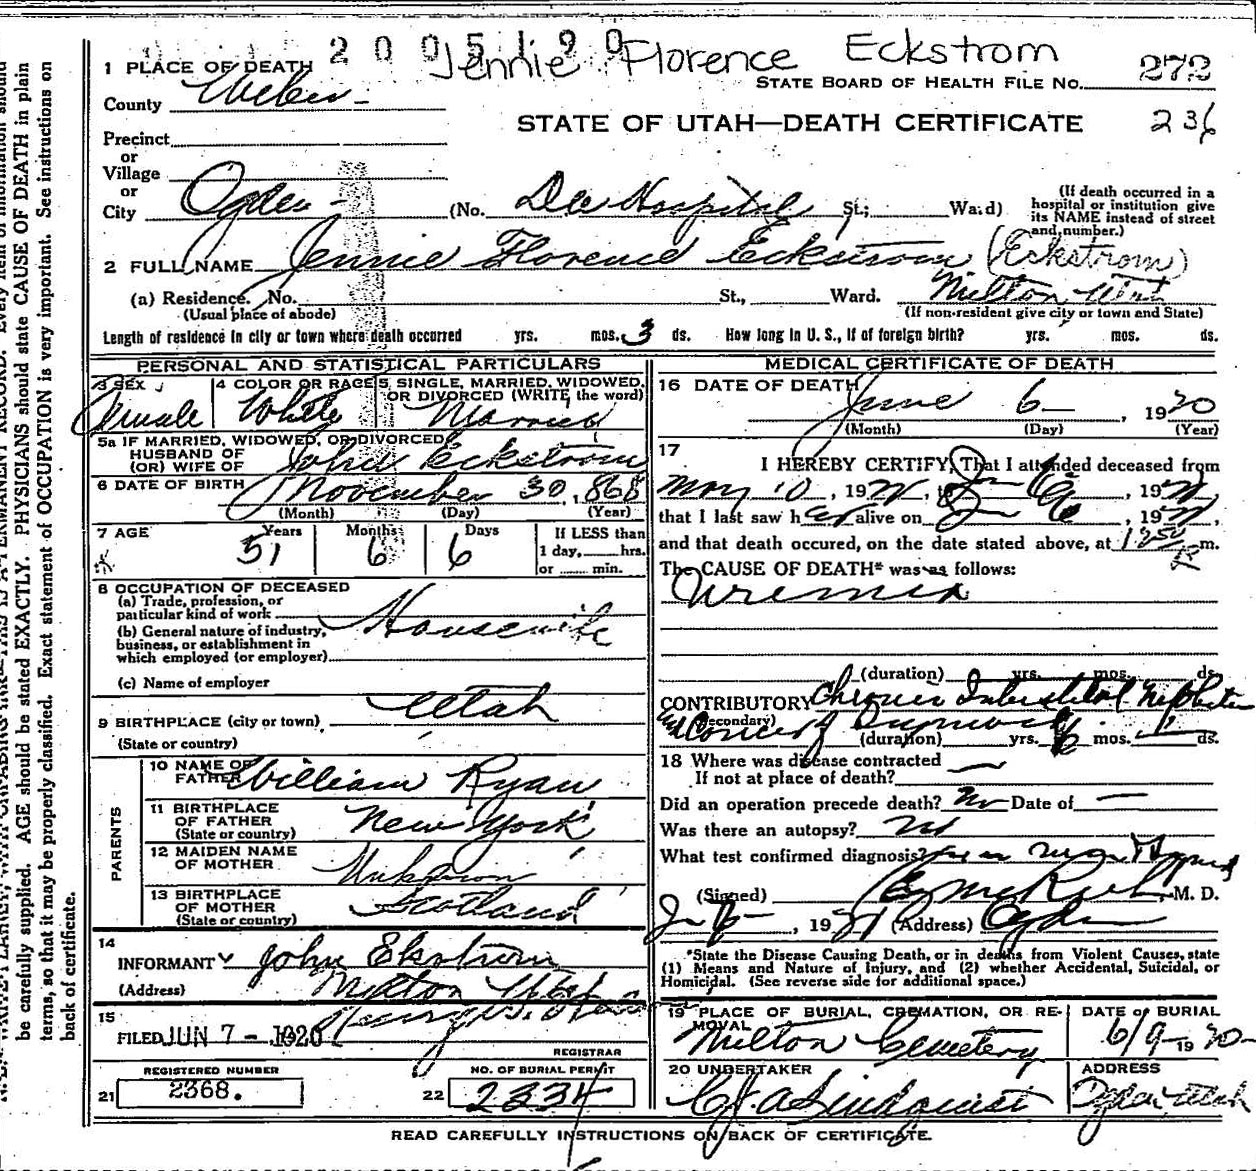 2005190 Jennie Florence Eckstrom
1 PLACE OF DEATH
STATE BOARD OF HEALTH FILE NO. 272
County Weber
STATE OF UTAH—DEATH CERTIFICATE 236
Precinct
or
Village
or
City Ogden (No. Dee Hospital St.; Ward)
(If death occurred in a
hospital or institution give
its NAME instead of street
and number.)
2 FULL NAME Jennie Florence Eckstrom (Eckstrom)
(a) Residence. No. St., Ward. Milton Utah
(Usual place of abode) (If non-resident give city or town and State)
Length of residence in city or town where death occurred yrs. mos. 3 ds. How long in U. S., if of foreign birth? yrs. mos. ds.
PERSONAL AND STATISTICAL PARTICULARS
3 SEX Female
4 COLOR OR RACE White
5 SINGLE, MARRIED, WIDOWED, OR DIVORCED (WRITE the word) Married
5a IF MARRIED, WIDOWED, OR DIVORCED
HUSBAND OF
(OR) WIFE OF John Eckstrom
6 DATE OF BIRTH November 30, 868
(Month) (Day) (Year)
7 AGE Years Months Days If LESS than
51 6 6 1 day, hrs.
or min.
8 OCCUPATION OF DECEASED
(a) Trade, profession, or
particular kind of work Housewife
(b) General nature of industry,
business, or establishment in
which employed (or employer)
(c) Name of employer
9 BIRTHPLACE (city or town) Utah
(State or country)
PARENTS
10 NAME OF
FATHER William Ryan
11 BIRTHPLACE
OF FATHER New York
(State or country)
12 MAIDEN NAME
OF MOTHER Unknown
13 BIRTHPLACE
OF MOTHER Scotland
(State or country)
14
INFORMANT John Ekstrom
(Address) Milton Utah
15
FILED JUN 7 - 1920
REGISTRAR
REGISTERED NUMBER
21 2368.
NO. OF BURIAL PERMIT
22 2334
MEDICAL CERTIFICATE OF DEATH
16 DATE OF DEATH June 6, 1920
(Month) (Day) (Year)
17
I HEREBY CERTIFY, That I attended deceased from
May 10, 192 , 192
that I last saw her alive on , 192 ,
and that death occured, on the date stated above, at m.
The CAUSE OF DEATH* was as follows:
Uremia
(duration) yrs. mos. ds.
CONTRIBUTORY Chronic Interstitial Nephritis
(Secondary)
(duration) yrs. mos. ds.
18 Where was disease contracted
If not at place of death?
Did an operation precede death? No Date of —
Was there an autopsy? No
What test confirmed diagnosis?
(Signed) M. D.
, 19 (Address) Ogden
*State the Disease Causing Death, or in deaths from Violent Causes, state
(1) Means and Nature of Injury, and (2) whether Accidental, Suicidal, or
Homicidal. (See reverse side for additional space.)
19 PLACE OF BURIAL, CREMATION, OR RE-
MOVAL
Milton Cemetery
DATE OF BURIAL
6/9 1920
20 UNDERTAKER
C. J. A. Lindquist
ADDRESS
Ogden Utah
READ CAREFULLY INSTRUCTIONS ON BACK OF CERTIFICATE.
be carefully supplied. AGE should be stated EXACTLY. PHYSICIANS should state CAUSE OF DEATH in plain
terms, so that it may be properly classified. Exact statement of OCCUPATION is very important. See instructions on
back of certificate.